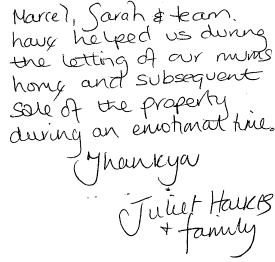 Marcel, Sarah & team.
have helped us during
the letting of our mums
home and subsequent
sale of the property
during an emotional time.
Thankyou
Juliet Hawkes
+ family